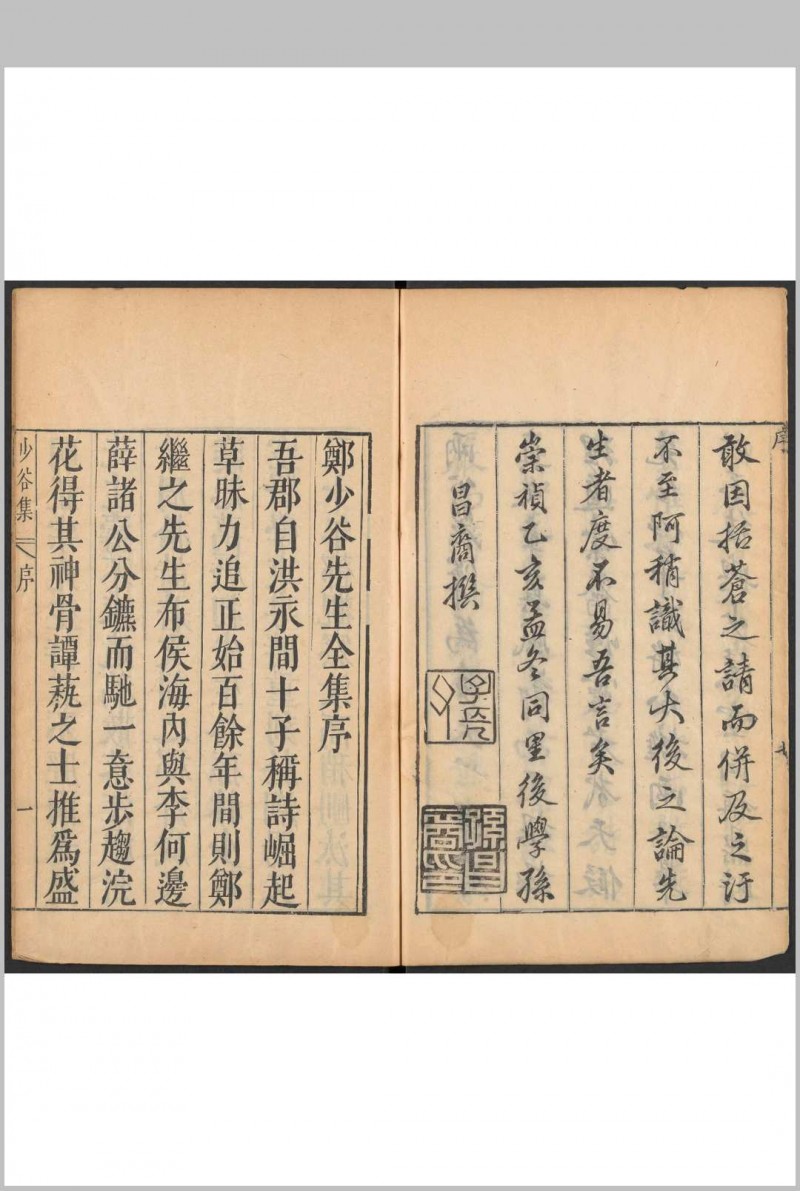 序
敢因括蒼之請而併及之汙
不至阿稍識其大後之論先
生者度不易吾言矣
崇禎乙亥孟冬同里後學孫
昌裔撰
孫昌裔印
鄭少谷先生全集序
吾郡自洪永間十子稱詩崛起
草昧力追正始百餘年間則鄭
繼之先生布侯海內與李何邊
薛諸公分鑣而馳一意步趨浣
花得其神骨譚蓺之士推爲盛
少谷集 序 一